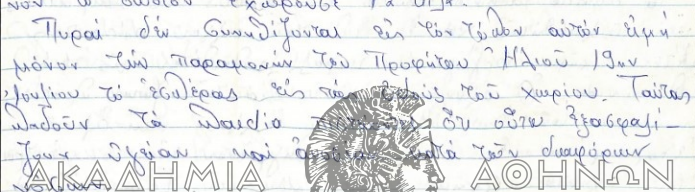 Πυραί δέν συνηθίζονται εἰς τόν τόπον αὐτόν εἰμή
μόνον τήν παραμονήν τοῦ Προφήτου Ἠλιοῦ 19ην
Ἰουλίου τό ἑσπέρας εἰς τάς ὁδούς τοῦ χωρίου. Ταύτας
πηδοῦν τά παιδία ὅτι οὕτω ἐξασφαλί-
ζουν ὑγείαν καί κατά τῶν διαφόρων
ΑΚΑΔΗΜΙΑ ΑΘΗΝΩΝ